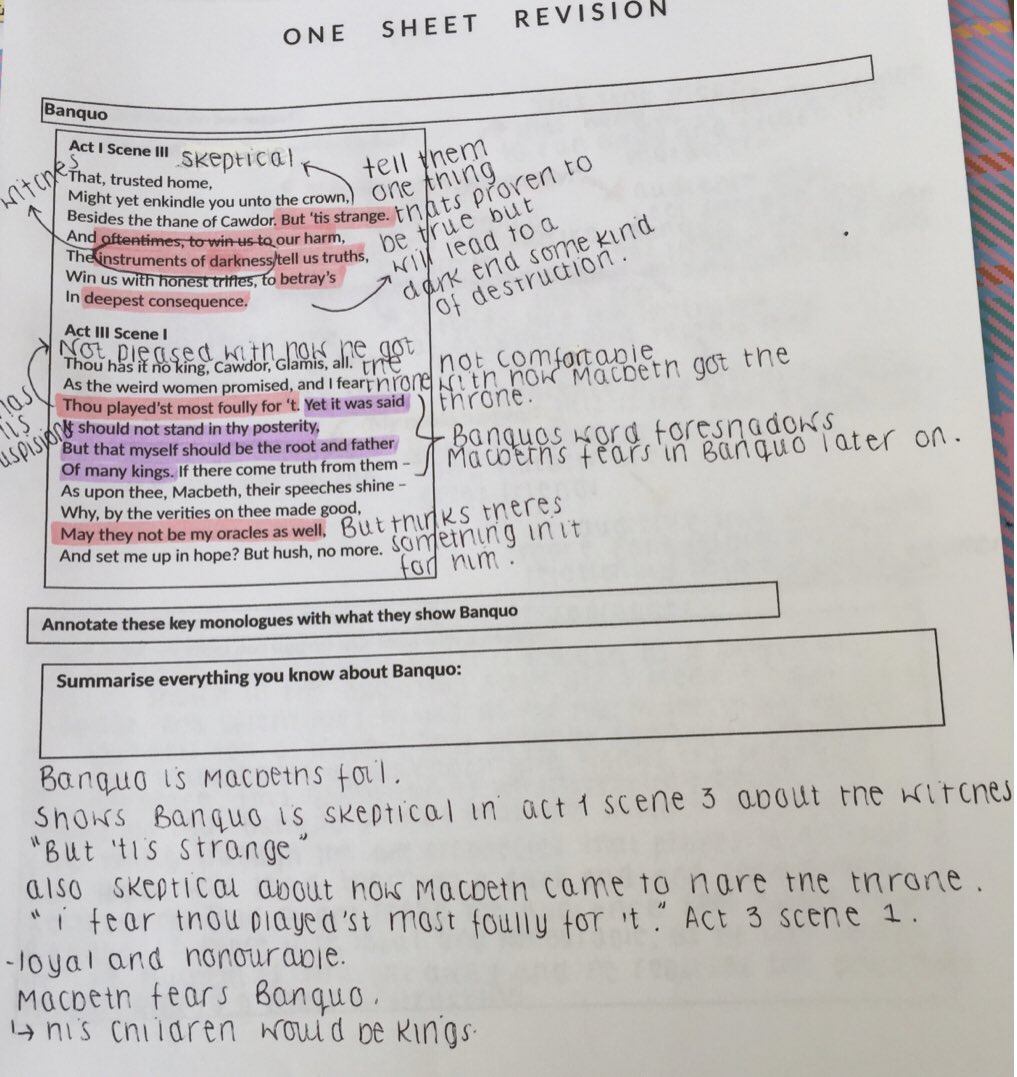 ONE SHEET REVISION
Banquo
Act I Scene III
skeptical
witches
That, trusted home,
Might yet enkindle you unto the crown,
Besides the thane of Cawdor. But 'tis strange.
And oftentimes, to win us to our harm,
The instruments of darkness tell us truths,
Win us with honest trifles, to betray's
In deepest consequence.
tell them
one thing
thats proven to
be true but
will lead to a
dark end some kind
of destruction.
Act III Scene I
Not pleased with how he got
the
throne
Thou has it no king, Cawdor, Glamis, all.
As the weird women promised, and I fear
Thou played'st most foully for 't. Yet it was said
It should not stand in thy posterity,
But that myself should be the root and father
Of many kings. If there come truth from them –
As upon thee, Macbeth, their speeches shine –
Why, by the verities on thee made good,
May they not be my oracles as well,
And set me up in hope? But hush, no more.
has
his
uspision
not comfortable
with how Macbeth got the
throne.
Banquos word foreshadows
Macbeths fears in Banquo later on.
But thinks theres
something in it
for him.
Annotate these key monologues with what they show Banquo
Summarise everything you know about Banquo:
Banquo is Macbeths foil.
Shows Banquo is skeptical in act 1 scene 3 about the witches
"But 'tis strange"
also skeptical about how Macbeth came to hare the throne.
"i fear thou played'st most foully for 't." Act 3 scene 1.
-loyal and honourable.
Macbeth fears Banquo.
↳ his children would be kings.